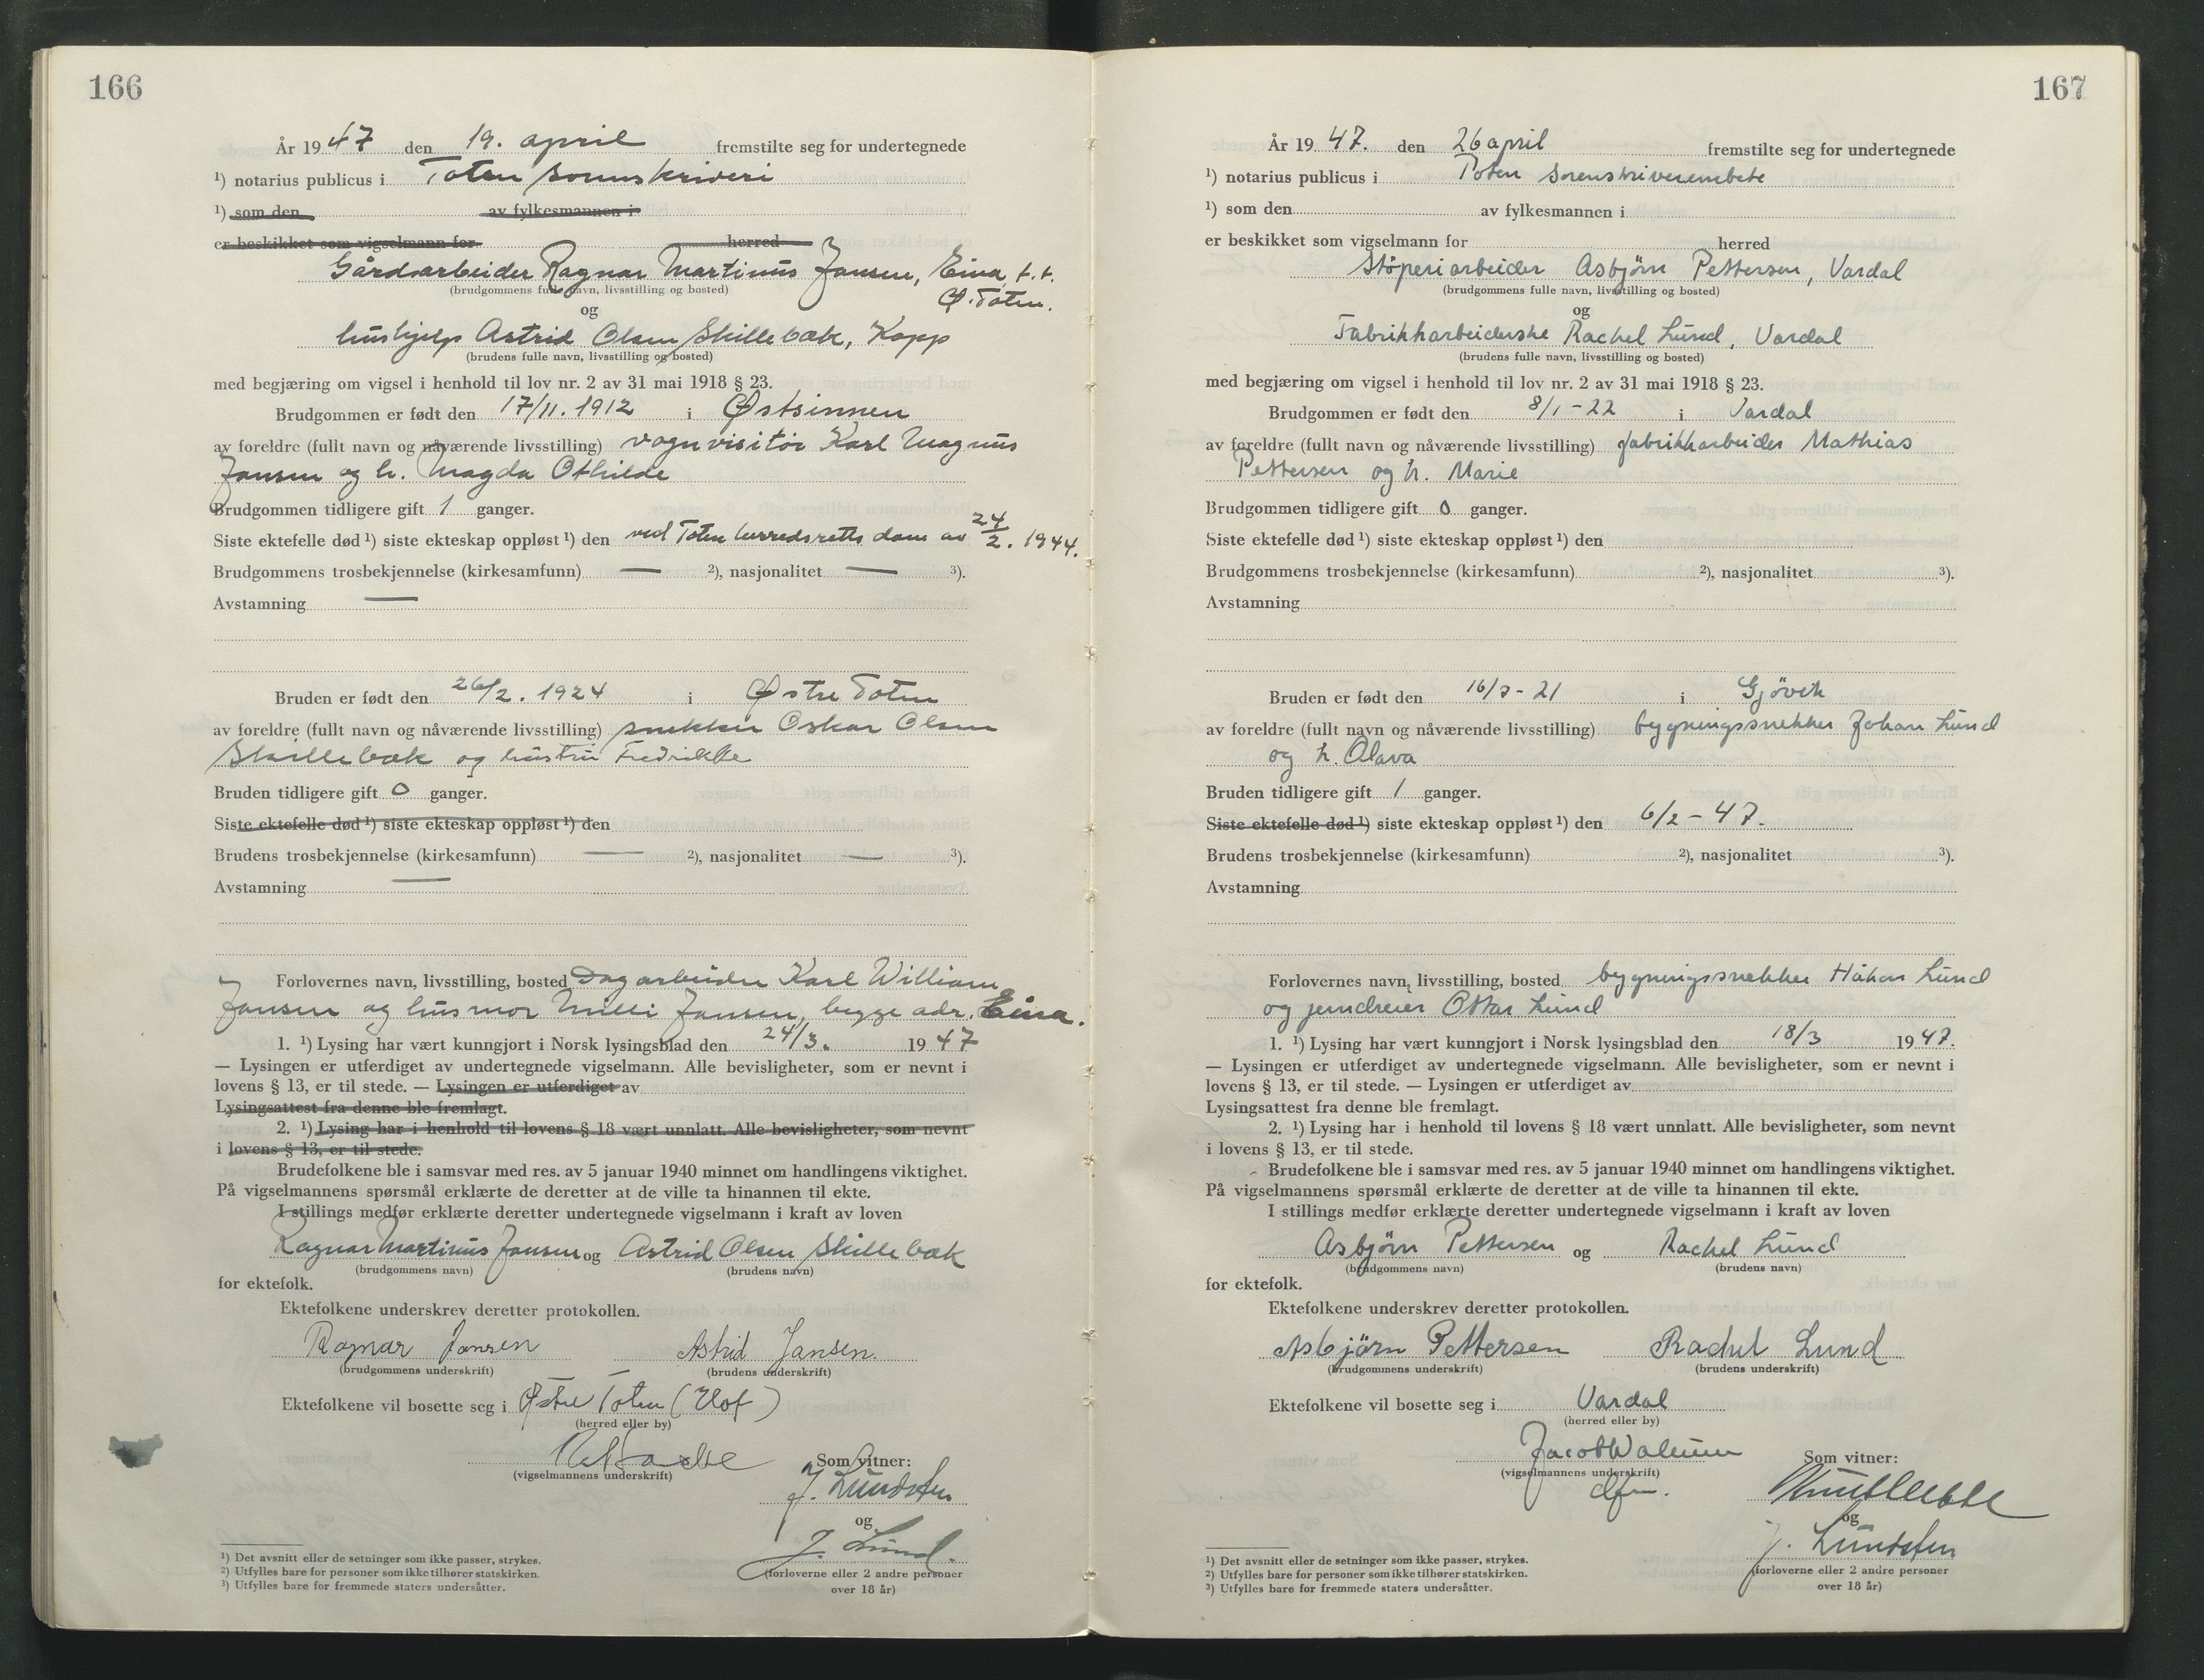 166
År 19 47 den 19. april fremstilte seg for undertegnede
¹) notarius publicus i Toten sorenskriveri
¹) som den av fylkesmannen i
er beskikket som vigselmann for herred
Gårdsarbeider Ragnar Martinus Jansen, Eina, f.t.
(brudgommens fulle navn, livsstilling og bosted) Ø. Toten.
og
hushjelp Astrid Olsen Skillebæk, Kapp
(brudens fulle navn, livsstilling og bosted)
med begjæring om vigsel i henhold til lov nr. 2 av 31 mai 1918 § 23.
Brudgommen er født den 17/11. 1912 i Østsinnen
av foreldre (fullt navn og nåværende livsstilling) vognvisitør Karl Magnus
Jansen og h. Magda Othilde
Brudgommen tidligere gift 1 ganger.
Siste ektefelle død¹) siste ekteskap oppløst¹) den ved Toten herredsretts dom av 24/2. 1944.
Brudgommens trosbekjennelse (kirkesamfunn) — ²), nasjonalitet — ³).
Avstamning —
Bruden er født den 26/2. 1924 i Østre Toten
av foreldre (fullt navn og nåværende livsstilling) snekker Oskar Olsen
Skillebæk og hustru Fredrikke
Bruden tidligere gift 0 ganger.
Siste ektefelle død¹) siste ekteskap oppløst¹) den
Brudens trosbekjennelse (kirkesamfunn) — ²), nasjonalitet — ³).
Avstamning —
Forlovernes navn, livsstilling, bosted Dagarbeider Karl William
Jansen og husmor Milli Jansen, begge adr. Eina.
1. ¹) Lysing har vært kunngjort i Norsk lysingsblad den 24/3. 19 47
— Lysingen er utferdiget av undertegnede vigselmann. Alle bevisligheter, som er nevnt i
lovens § 13, er til stede. — Lysingen er utferdiget av
Lysingsattest fra denne ble fremlagt.
2. ¹) Lysing har i henhold til lovens § 18 vært unnlatt. Alle bevisligheter, som nevnt
i lovens § 13, er til stede.
Brudefolkene ble i samsvar med res. av 5 januar 1940 minnet om handlingens viktighet.
På vigselmannens spørsmål erklærte de deretter at de ville ta hinannen til ekte.
I stillings medfør erklærte deretter undertegnede vigselmann i kraft av loven
Ragnar Martinus Jansen og Astrid Olsen Skillebæk
(brudgommens navn) (brudens navn)
for ektefolk.
Ektefolkene underskrev deretter protokollen.
Ragnar Jansen Astrid Jansen.
(brudgommens underskrift) (brudens underskrift)
Ektefolkene vil bosette seg i Østre Toten (Hof)
(herred eller by)
Som vitner:
(vigselmannens underskrift)
J. Lundsten
og
J. Lund.
(forloverne eller 2 andre personer
over 18 år)
¹) Det avsnitt eller de setninger som ikke passer, strykes.
²) Utfylles bare for personer som ikke tilhører statskirken.
³) Utfylles bare for fremmede staters undersåtter.
167
År 19 47. den 26 april fremstilte seg for undertegnede
¹) notarius publicus i Toten sorenskriverembete
¹) som den av fylkesmannen i
er beskikket som vigselmann for herred
Støperiarbeider Asbjørn Pettersen, Vardal
(brudgommens fulle navn, livsstilling og bosted)
og
Fabrikkarbeiderske Rachel Lund, Vardal
(brudens fulle navn, livsstilling og bosted)
med begjæring om vigsel i henhold til lov nr. 2 av 31 mai 1918 § 23.
Brudgommen er født den 8/1 - 22 i Vardal
av foreldre (fullt navn og nåværende livsstilling) fabrikkarbeider Mathias
Pettersen og h. Marie
Brudgommen tidligere gift 0 ganger.
Siste ektefelle død¹) siste ekteskap oppløst¹) den
Brudgommens trosbekjennelse (kirkesamfunn) ²), nasjonalitet ³).
Avstamning
Bruden er født den 16/7 - 21 i Gjövik
av foreldre (fullt navn og nåværende livsstilling) bygningssnekker Johan Lund
og h. Olava
Bruden tidligere gift 1 ganger.
Siste ektefelle død¹) siste ekteskap oppløst¹) den 6/2 - 47.
Brudens trosbekjennelse (kirkesamfunn) ²), nasjonalitet ³).
Avstamning
Forlovernes navn, livsstilling, bosted bygningssnekker Håkon Lund
og jerndreier Ottar Lund
1. ¹) Lysing har vært kunngjort i Norsk lysingsblad den 18/3 19 47.
— Lysingen er utferdiget av undertegnede vigselmann. Alle bevisligheter, som er nevnt i
lovens § 13, er til stede. — Lysingen er utferdiget av
Lysingsattest fra denne ble fremlagt.
2. ¹) Lysing har i henhold til lovens § 18 vært unnlatt. Alle bevisligheter, som nevnt
i lovens § 13, er til stede.
Brudefolkene ble i samsvar med res. av 5 januar 1940 minnet om handlingens viktighet.
På vigselmannens spørsmål erklærte de deretter at de ville ta hinannen til ekte.
I stillings medfør erklærte deretter undertegnede vigselmann i kraft av loven
Asbjørn Pettersen og Rachel Lund
(brudgommens navn) (brudens navn)
for ektefolk.
Ektefolkene underskrev deretter protokollen.
Asbjörn Pettersen Rachel Lund
(brudgommens underskrift) (brudens underskrift)
Ektefolkene vil bosette seg i Vardal
(herred eller by)
Jacob Som vitner:
(vigselmannens underskrift)
og
J. Lundsten
(forloverne eller 2 andre personer
over 18 år)
¹) Det avsnitt eller de setninger som ikke passer, strykes.
²) Utfylles bare for personer som ikke tilhører statskirken.
³) Utfylles bare for fremmede staters undersåtter.